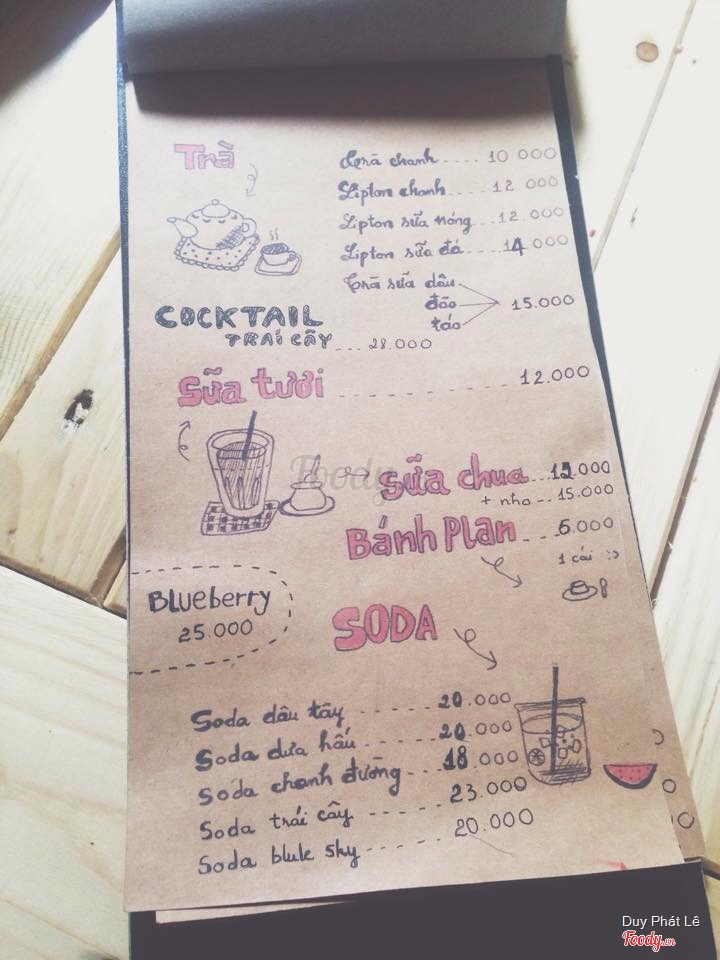 Trà
Trà chanh .... 10 000
Lipton chanh ... 12 000
Lipton sữa nóng ... 12.000
Lipton sữa đá ... 14 000
Trà sữa dâu
đào 15.000
táo
COCKTAIL
TRÁI CÂY ... 28.000
Sữa tươi ............ 12.000
Foody
Sữa chua ... 12.000
+ nho ... 15.000
Bánh Plan ... 6.000
1 cái :)
BLueberry
25.000
SODA
Soda dâu tây ....... 20.000
Soda dưa hấu ...... 20.000
Soda chanh đường ... 18.000
Soda trái cây ....... 23.000
Soda blule sky ...... 20.000
Duy Phát Lê
Foody.vn